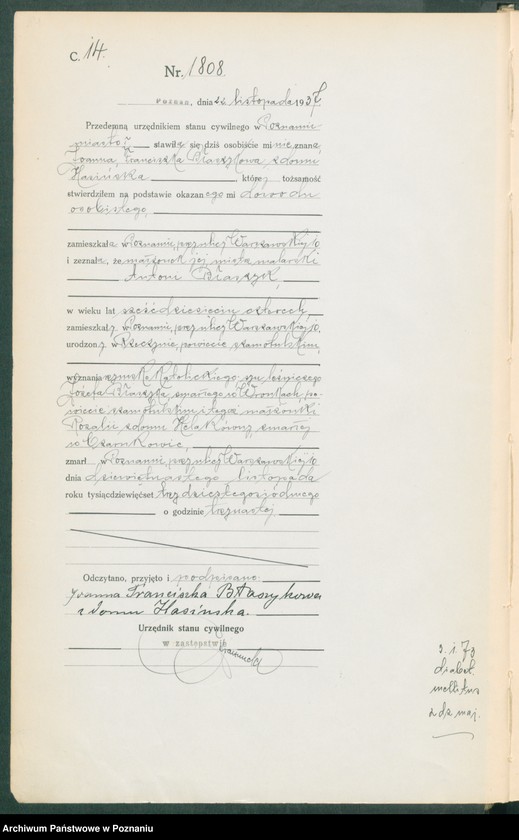 C. 14.
Nr. 1808.
Poznań, dnia 22 listopada 1937.
Przedemną urzędnikiem stanu cywilnego w Poznaniu
miasto stawiła się dziś osobiście mi nie znana,
Joanna, Franciszka Błaszykowa z domu
Hasińska, której tożsamość
stwierdziłem na podstawie okazanego mi dowodu
osobistego,
zamieszkała w Poznaniu, przy ulicy Warszawskiej 10
i zeznała, że małżonek jej, malarski
Antoni Błaszyk,
w wieku lat sześćdziesięciu czterech,
zamieszkały w Poznaniu, przy ulicy Warszawskiej 10,
urodzony w, powiecie szamotulskim,
wyznania rzymsko katolickiego, syn leśniczego
Józefa Błaszyka, zmarłego w Wronkach, po-
wiecie szamotulskim i tegoż małżonki
Rozalii z domu, zmarłej
w Czarnkowie,
zmarł w Poznaniu, przy ulicy Warszawskiej 10
dnia dziewiętnastego listopada
roku tysiącdziewięćset trzydziestego siódmego
o godzinie trzynastej.
Odczytano, przyjęto i podpisano:
Joanna Franciszka Błaszykowa
z domu Hasińska.
Urzędnik stanu cywilnego
w zastępstwie
diabet.
mellitus
Archiwum Państwowe w Poznaniu